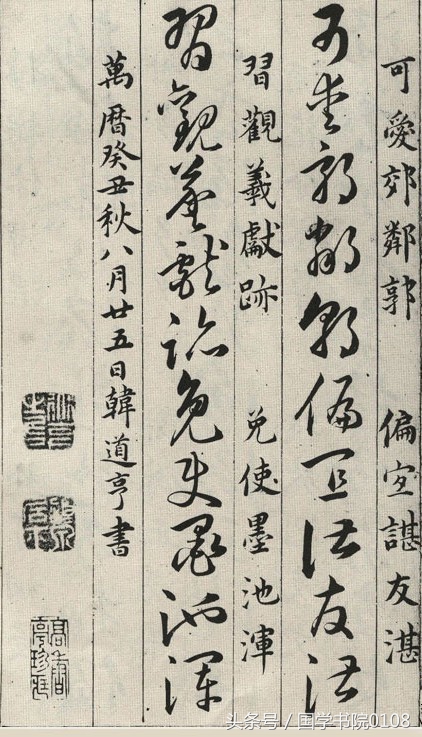 可愛郊鄰郭 偏宜諶友湛
可愛郊鄰郭偏宜諶友湛
習觀羲獻跡 免使墨池渾
習觀羲獻跡免使墨池渾
萬曆癸丑秋八月廿五日韓道亨書
头条号 / 国学书院0108